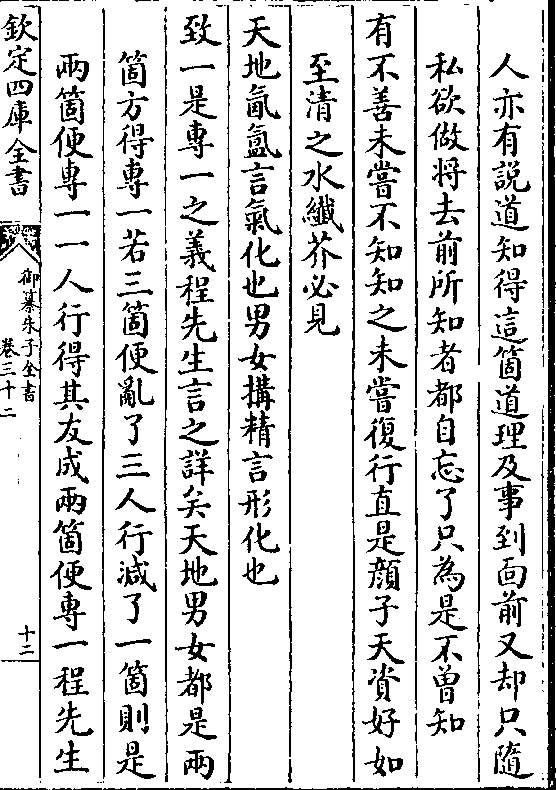 人亦有説道知得這箇道理及事到面前又却只隨
私欲做将去前所知者都自忘了只為是不曽知
有不善未嘗不知知之未嘗復行直是顔子天資好如
至清之水纖芥必見
天地氤氲言氣化也男女搆精言形化也
致一是專一之義程先生言之詳矣天地男女都是兩
箇方得專一若三箇便亂了三人行減了一箇則是
兩箇便專一一人行得其友成兩箇便專一程先生
欽定四庫全書
御纂朱子全書
卷三十二
十二